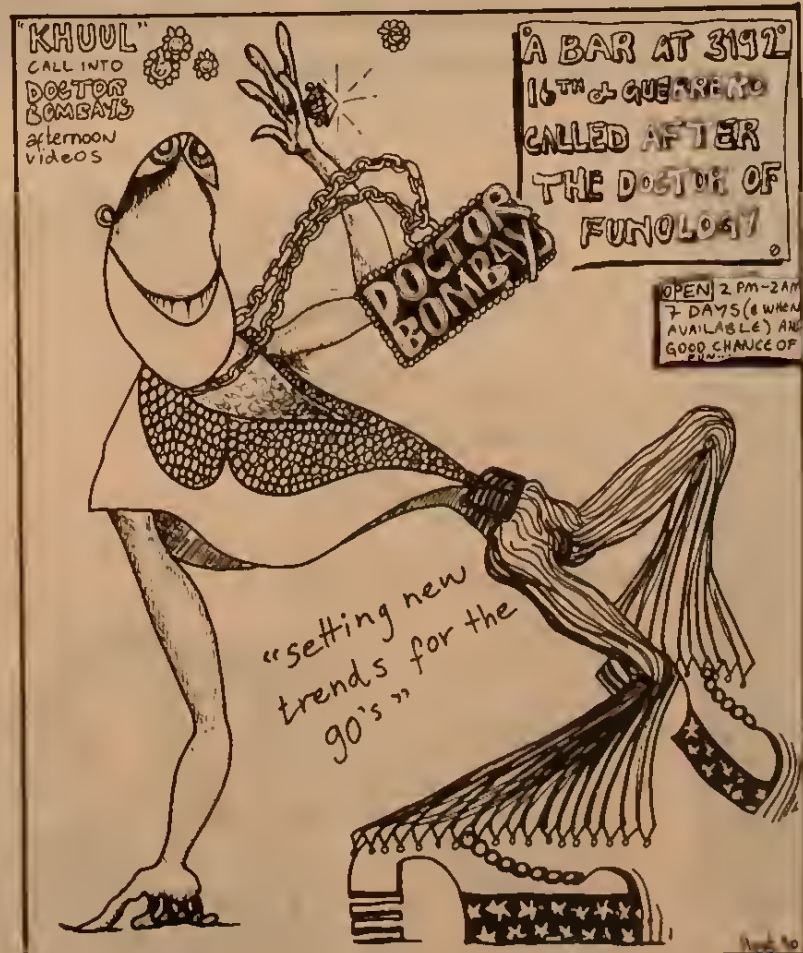 "KHUUL"
CALL INTO
DOCTOR
BOMBAYS
afternoon
videos
"A BAR AT 3192
16TH & GUERRERO
CALLED AFTER
THE DOCTOR OF
FUNOLOGY
OPEN 2 PM-2AM
7 DAYS (& WHEN
AVAILABLE) AND
GOOD CHANCE OF
FUN...
DOCTOR
BOMBAYS
"setting new
trends for the
90's"